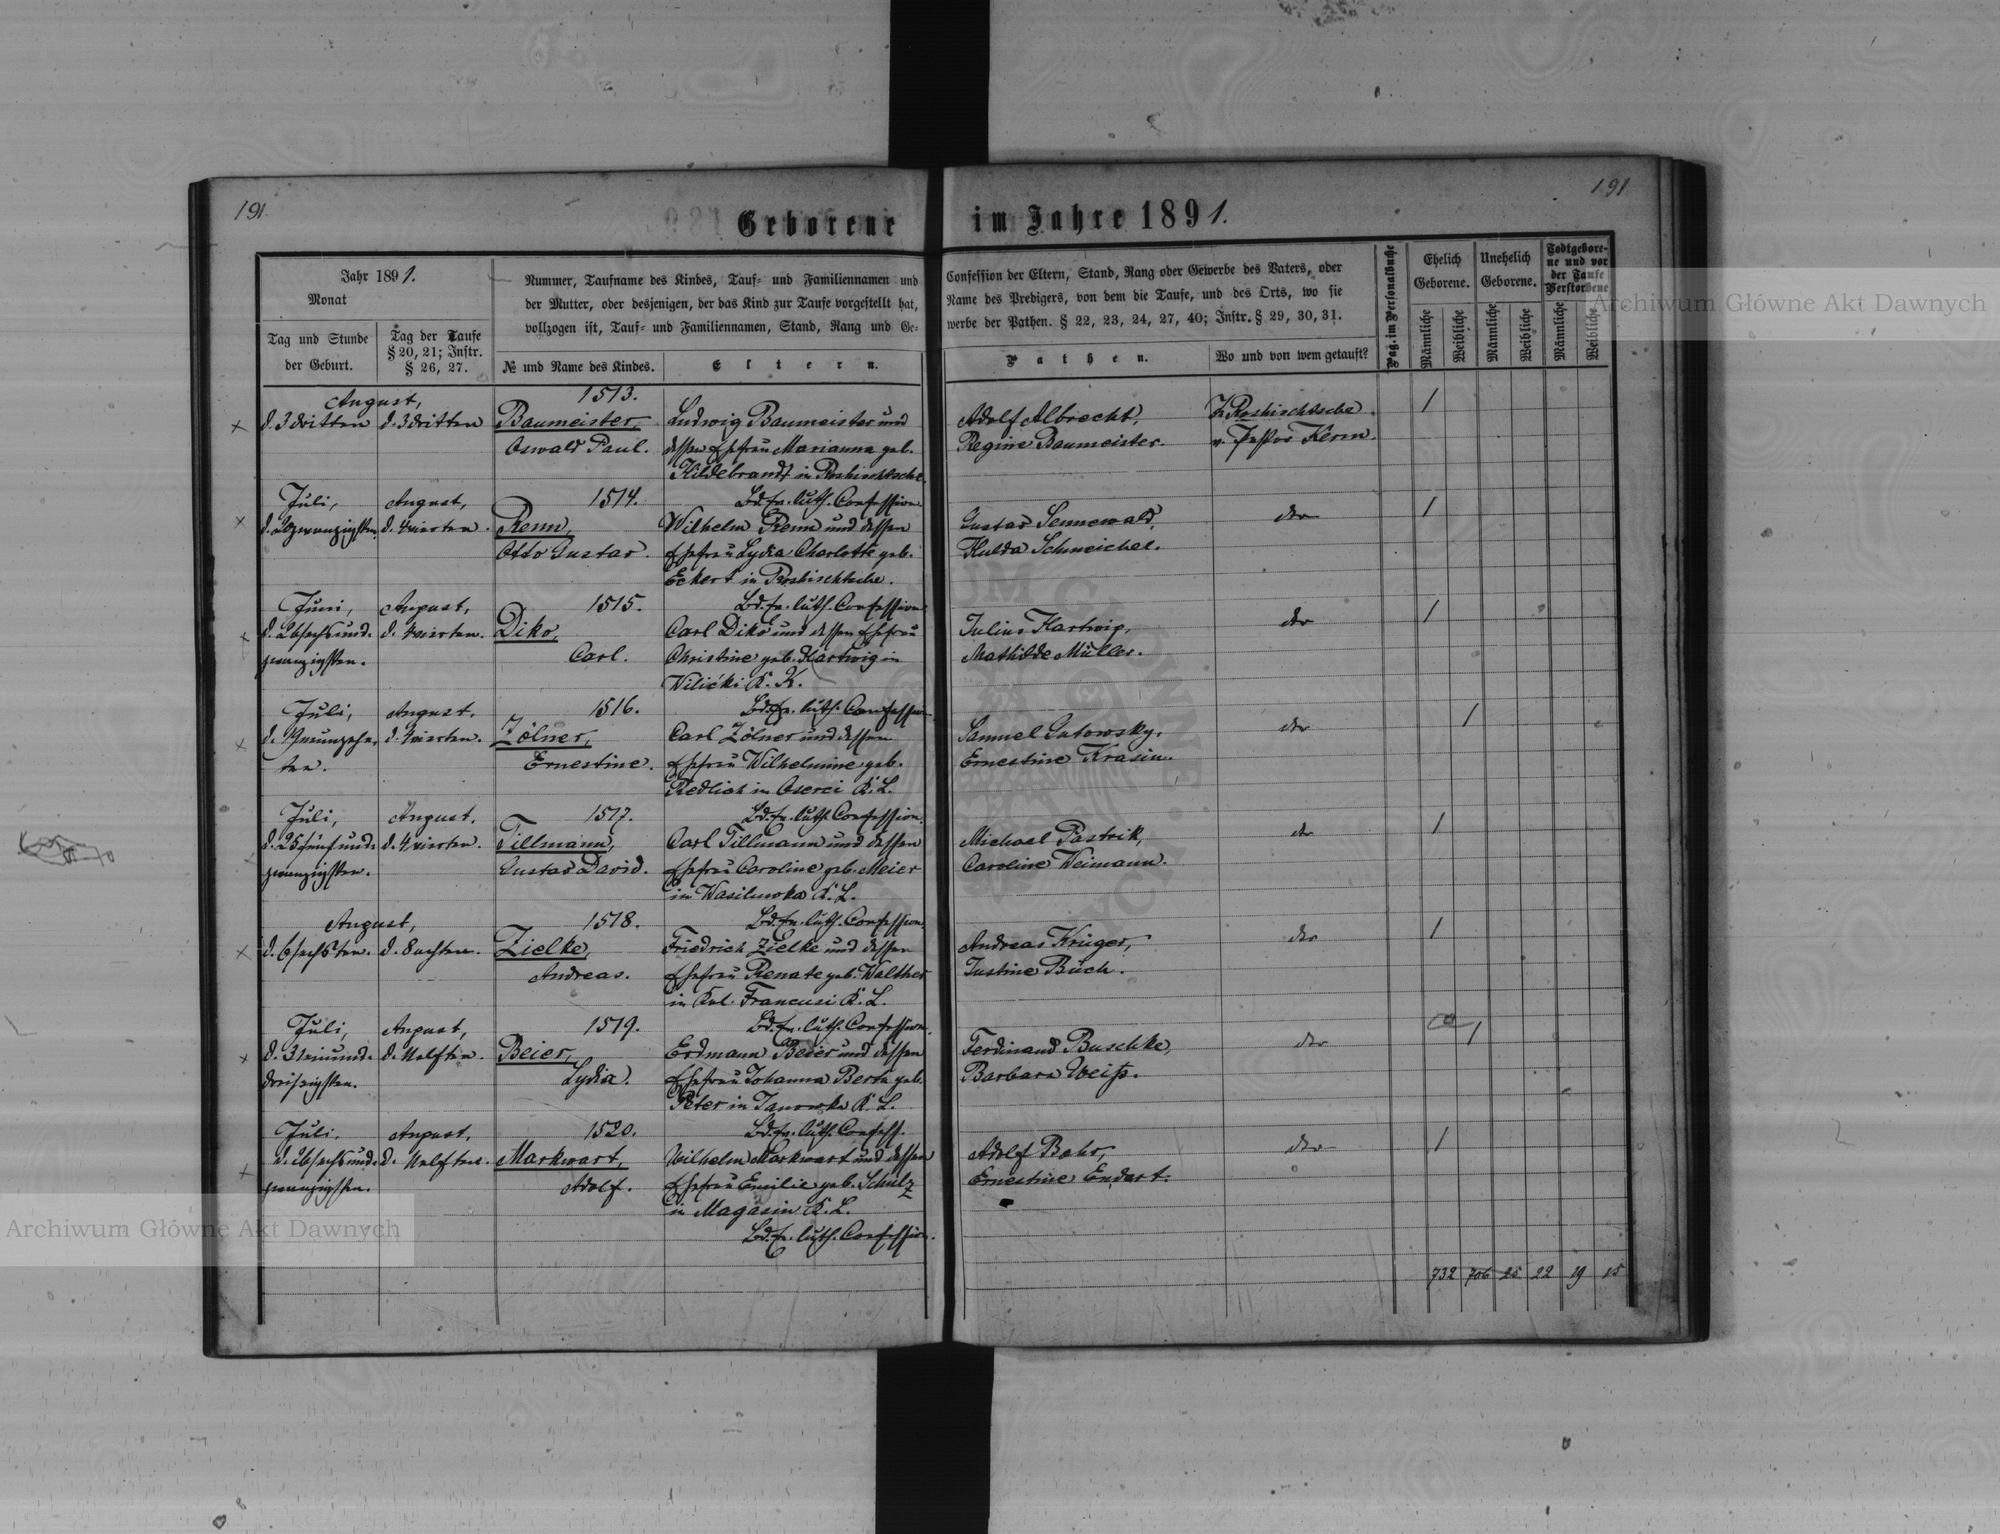 191.
191
Geborene im Jahre 1891.
Jahr 1891.
Monat
Tag und Stunde
der Geburt.
Tag der Taufe
§ 20, 21; Instr.
§ 26, 27.
Nummer, Taufname des Kindes, Tauf- und Familiennamen und
der Mutter, oder desjenigen, der das Kind zur Taufe vorgestellt hat,
vollzogen ist, Tauf- und Familiennamen, Stand, Rang und Ge-
№ und Name des Kindes.
Eltern.
Confession der Eltern, Stand, Rang oder Gewerbe des Vaters, oder
Name des Predigers, von dem die Taufe, und des Orts, wo sie
werbe der Pathen. § 22, 23, 24, 27, 40; Instr. § 29, 30, 31.
Pathen.
Wo und von wem getauft?
Pag. im Personalbuche
Ehelich
Geborene.
Unehelich
Geborene.
Todtgebore-
ne und vor
der Taufe
Verstorbene
Männliche
Weibliche
Männliche
Weibliche
Männliche
Weibliche
August,
d. 3 dritten
d. 3 dritten
1513.
Baumeister,
Oswald Paul.
Ludwig Baumeister und
dessen Ehefrau Marianna geb.
Hildebrandt in Roshischtsche
Bd. ev. luth. Confession
Adolf Albrecht,
Regine Baumeister.
Z. Roshischtsche
v. Pastor Kerm.
1
Juli,
August,
d. 4 vierten.
1514.
Renn,
Otto Gustav.
Wilhelm Renn und dessen
Ehefrau Lydia Charlotte geb.
Eckert in Roshischtsche.
Bd. ev. luth. Confession
Gustav Sennewald,
Hulda Schmeichel.
do
1
Juni,
d. 26 sechsund-
zwanzigsten.
August,
d. 4 vierten.
1515.
Diko,
Carl.
Carl Diko und dessen Ehefrau
Christine geb. Hartwig in
Wilićki K. K.
Bd. ev. luth. Confession
Julius Hartwig,
Mathilde Müller.
do
1
Juli,
d. 19 neunzehn-
ten.
August,
d. 4 vierten.
1516.
Zölner,
Ernestine.
Carl Zölner und dessen
Ehefrau Wilhelmine geb.
Redlich in Oserci K. L.
Bd. ev. luth. Confession.
Samuel Gutowsky,
Ernestine Krasin.
do
1
Juli,
d. 25 fünfund-
zwanzigsten.
August,
d. 4 vierten.
1517.
Tillmann,
Gustav David.
Carl Tillmann und dessen
Ehefrau Caroline geb. Meier
in Wasilewka K. L.
Bd. ev. luth. Confession.
Michael Pastrik,
Caroline Weimann.
do
1
August,
d. 6 sechsten.
d. 8 achten.
1518.
Zielke,
Andreas.
Friedrich Zielke und dessen
Ehefrau Renate geb. Walther
in Kol. Francusi K. L.
Bd. ev. luth. Confession.
Andreas Krüger,
Justine Buch.
do
1
Juli,
d. 31 einund-
dreissigsten.
August,
d. 11 elften.
1519.
Beier,
Lydia.
Erdmann Beier und dessen
Ehefrau Johanna Berta geb.
Peter in Janowka K. L.
Bd. ev. luth. Confess.
Ferdinand Buschke,
Barbara Weiss.
do
1
Juli,
d. 26 sechsund-
zwanzigsten.
August,
d. 11 elften.
1520.
Markwart,
Adolf.
Wilhelm Markwart und dessen
Ehefrau Emilie geb. Schulz
in Magasin K. L.
Bd. ev. luth. Confession.
Adolf Bahr,
Ernestine Endert.
do
1
732 706 25 22 19 15
Archiwum Główne Akt Dawnych
Archiwum Główne Akt Dawnych